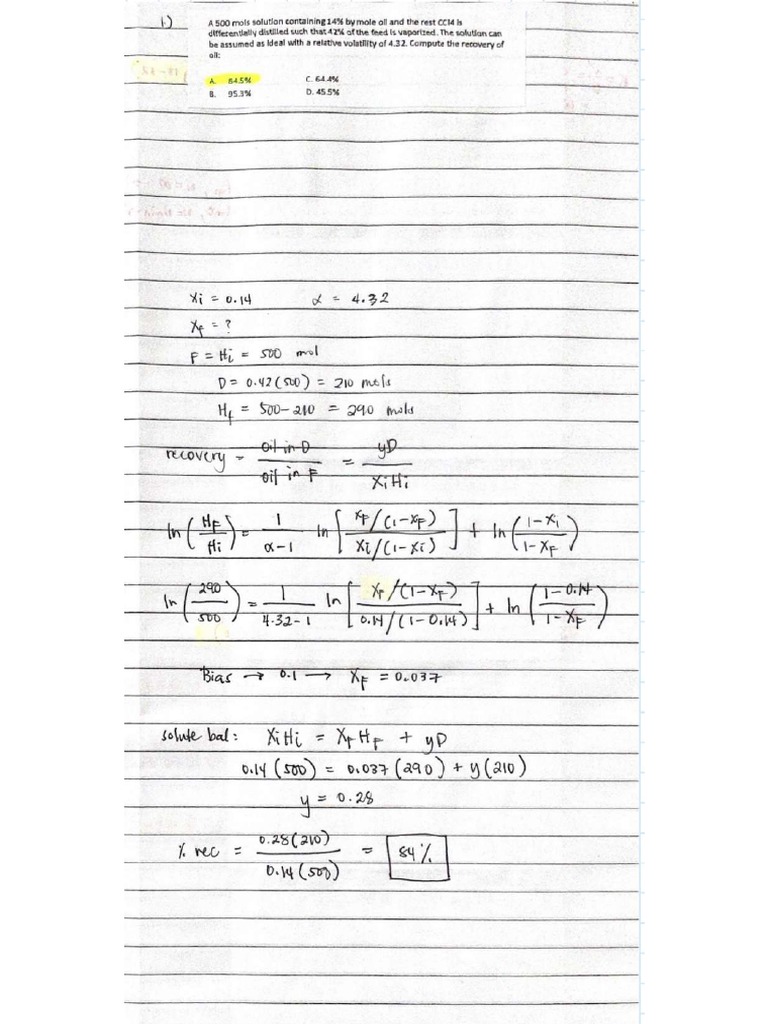 1.)
A 500 mols solution containing 14% by mole oil and the rest CCl4 is
differentially distilled such that 42% of the feed is vaporized. The solution can
be assumed as ideal with a relative volatility of 4.32. Compute the recovery of
oil:
A. 84.5% C. 64.4%
B. 95.3% D. 45.5%
xi = 0.14 α = 4.32
xF = ?
F = Hi = 500 mol
D = 0.42 (500) = 210 mols
Hf = 500-210 = 290 mols
recovery = oil in D / oil in F = yD / XiHi
ln (HF/Hi) = 1/(α-1) ln [ (xF/(1-xF)) / (xi/(1-xi)) ] + ln ( (1-xi) / (1-xF) )
ln (290/500) = 1/(4.32-1) ln [ (xF/(1-xF)) / (0.14/(1-0.14)) ] + ln ( (1-0.14) / (1-xF) )
Bias → 0.1 → XF = 0.037
solute bal: XiHi = XFHF + yD
0.14 (500) = 0.037 (290) + y (210)
y = 0.28
% rec = 0.28(210) / 0.14(500) = 84%